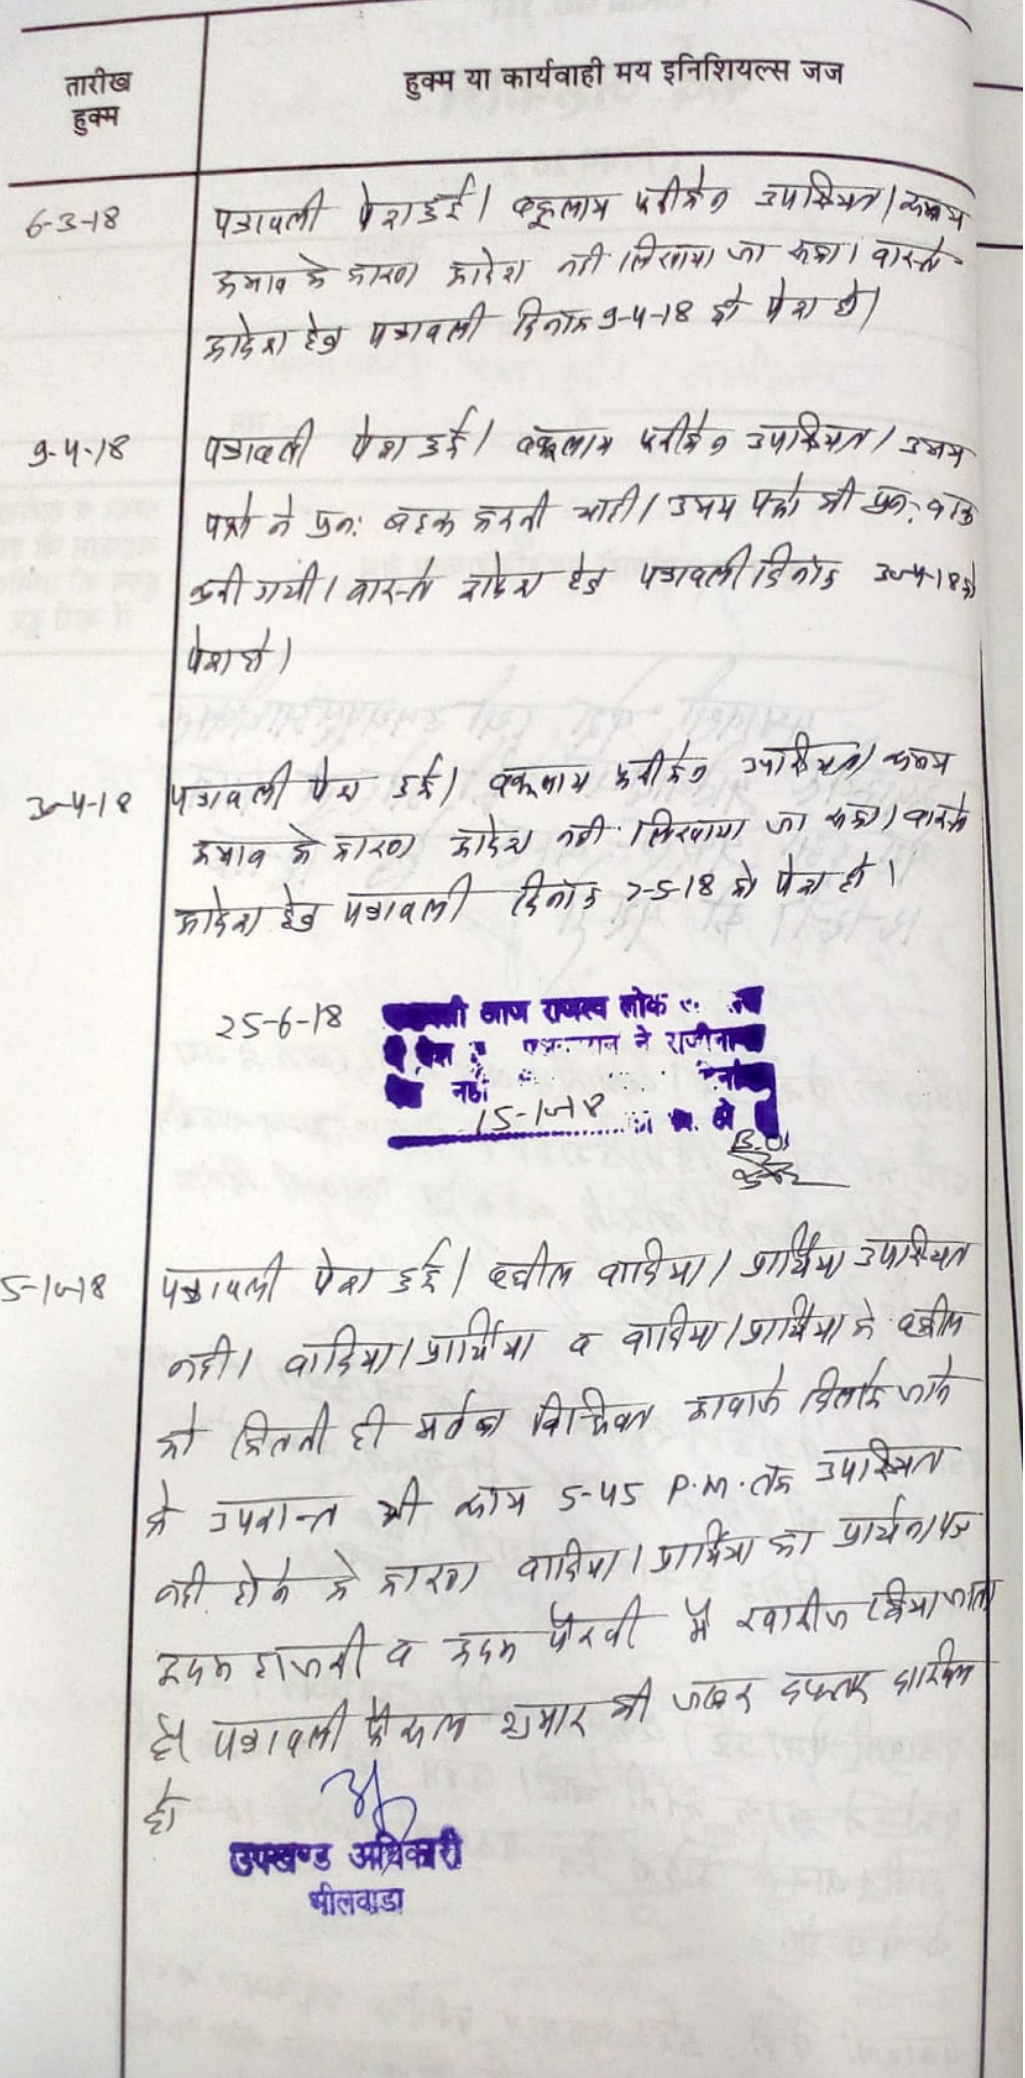 तारीख
हुक्म
हुक्म या कार्यवाही मय इनिशियल्स जज
6-3-18 पत्रावली पेश हुई। वकूलाय फरीकेन उपस्थित। समय
अभाव के कारण आदेश नही लिखाया जा सका। वास्ते
आदेश हेतु पत्रावली दिनांक 9-4-18 को पेश हो।
9-4-18 पत्रावली पेश हुई। वकूलाय फरीकेन उपस्थित। उभय
पक्षो ने पुन: बहस करनी चाही। उभय पक्षो की पुन: बहस
सुनी गयी। वास्ते आदेश हेतु पत्रावली दिनांक 30-4-18 को
पेश हो।
30-4-18 पत्रावली पेश हुई। वकूलाय फरीकेन उपस्थित। समय
अभाव के कारण आदेश नही लिखाया जा सका। वास्ते
आदेश हेतु पत्रावली दिनांक 7-5-18 को पेश हो।
25-6-18 आज राजस्व लोक
ने राजीनामा
नहीं
15-10-18
5-10-18 पत्रावली पेश हुई। वकील वादिया/प्रार्थिया उपस्थित
नही। वादिया/प्रार्थिया व वादिया/प्रार्थिया के वकील
को कितनी ही मर्तबा विधिवत आवाजे दिलाई जाने
के उपरान्त भी समय 5-45 P.M. तक उपस्थित
नही होने के कारण वादिया/प्रार्थिया का प्रार्थना पत्र
अदम हाजरी व अदम पैरवी मे खारीज किया जाता
है। पत्रावली फैसल शुमार की जाकर दफ्तर दाखिल
हो
उपखण्ड अधिकारी
भीलवाडा